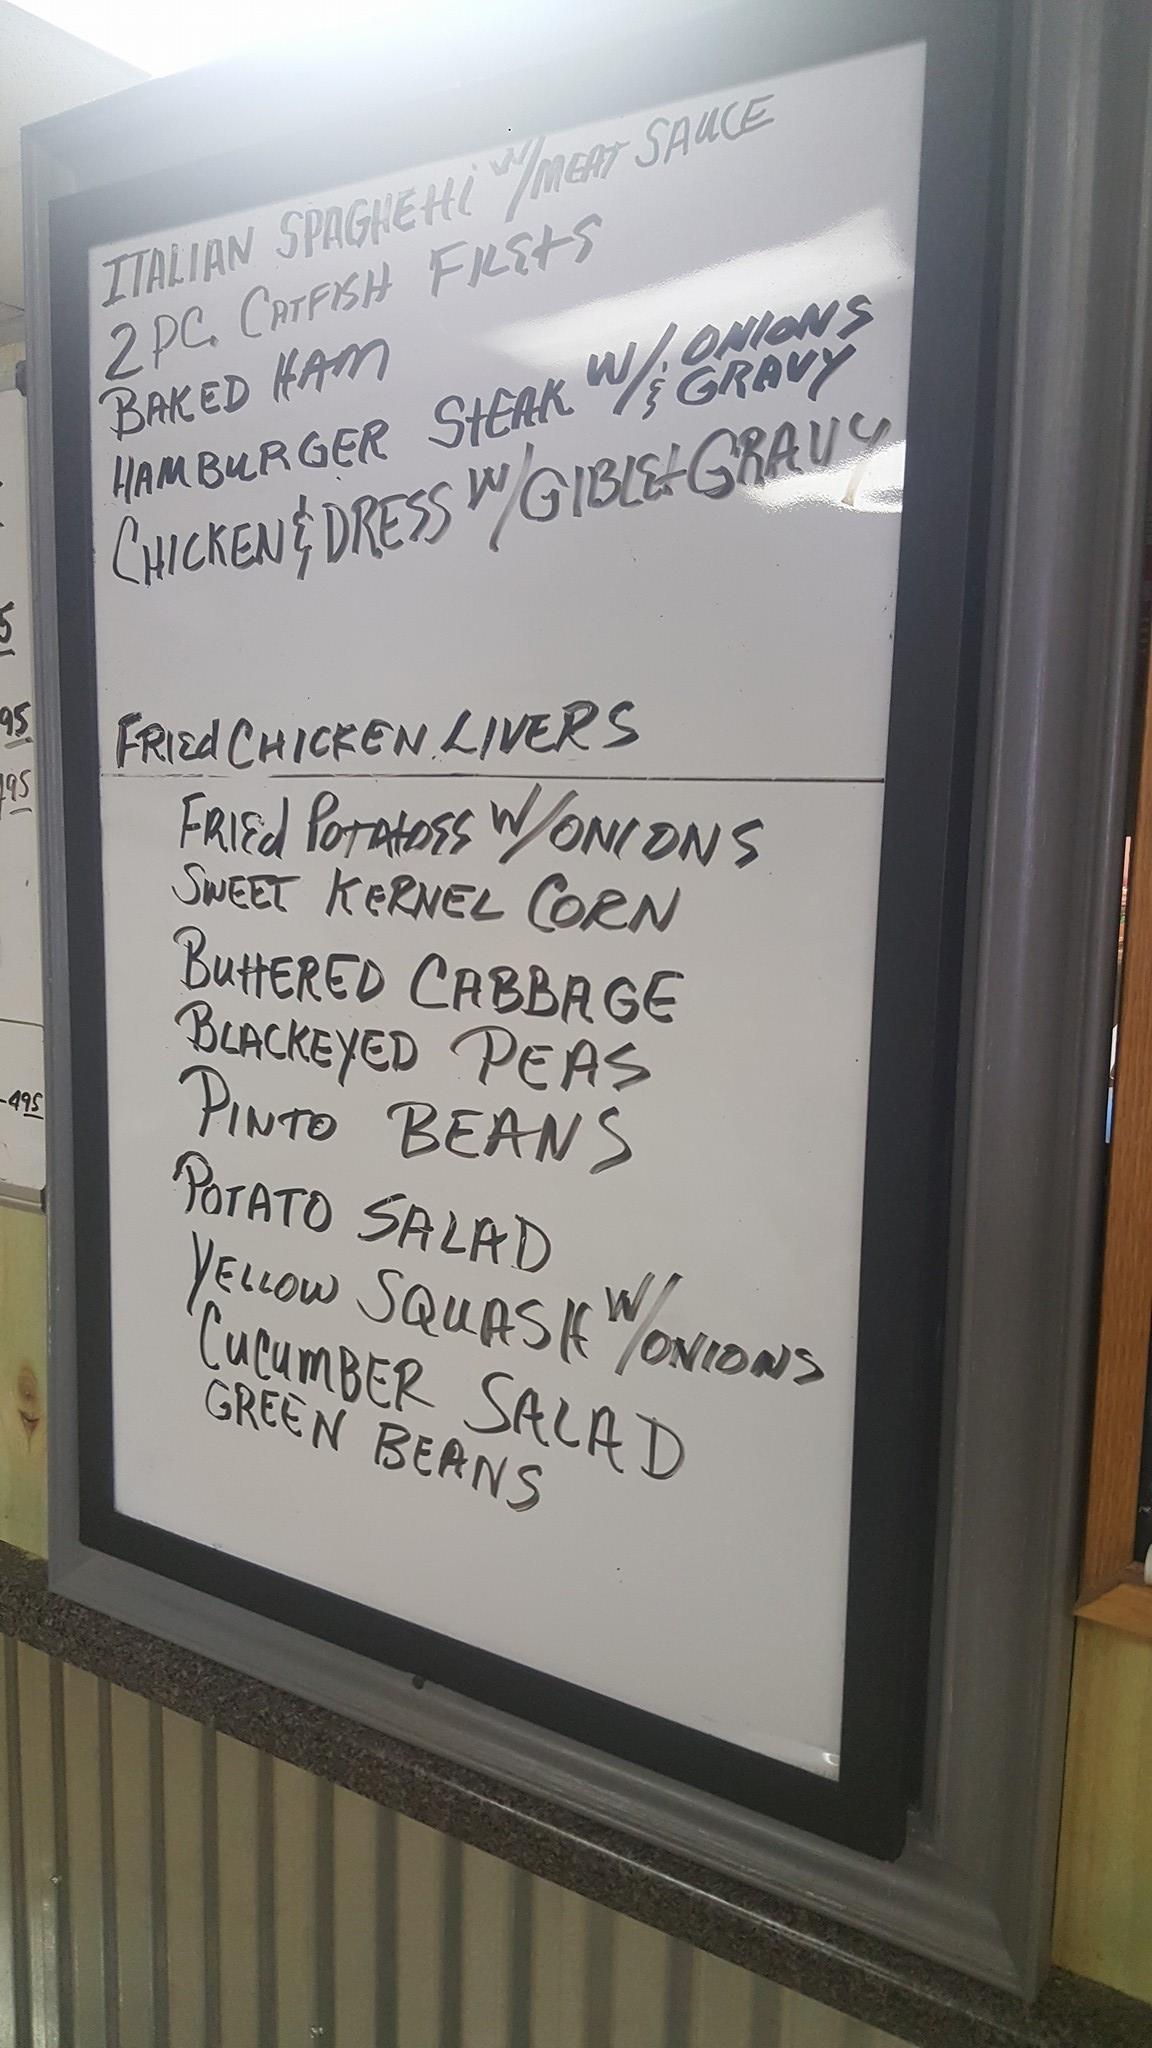 ITALIAN SPAGHETTi W/MEAT SAUCE
2 PC. CATFISH FILEtS
BAKED HAM
HAMBURGER StEAK W/ONIONS
& GRAVY
CHICKEN & DRESS W/GIBLEt GRAVY
FRIEd CHICKEN LIVERS
FRIEd POTAtOES W/ONIONS
SWEET KERNEL CORN
BUttERED CABBAGE
BLACKEYED PEAS
PINTO BEANS
POTATO SALAD
YELLOW SQUASH W/ONIONS
CUCUMBER SALAD
GREEN BEANS
95
95
495